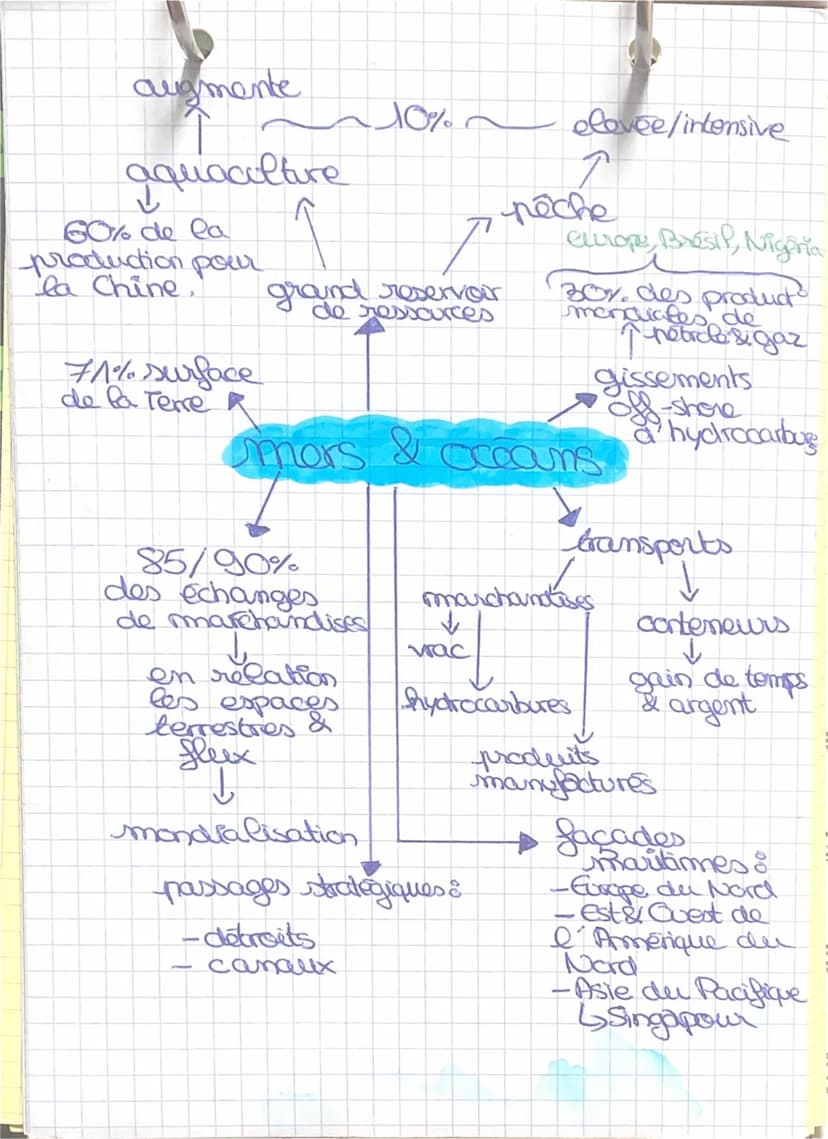 augmente
10%
elevée/intensive
aquaculture
pêche
60% de la
production pour
la Chine.
europe, Brésil, Nigéria
grand reservoir
de ressources
30% des product°
mondiales de
pétrole & gaz
71% surface
de la Terre
gissements
off-shore
d'hydrocarbures
mers & océans
85/90%
des échanges
de marchandises
en relation
les espaces
terrestres &
flux
mondialisation
transports
marchandises
vrac
hydrocarbures
produits
manufacturés
conteneurs
gain de temps
& argent
passages stratégiques :
- détroits
- canaux
façades
maritimes :
- Europe du Nord
- Est & Ouest de
l'Amérique du
Nord
- Asie du Pacifique
↳ Singapour